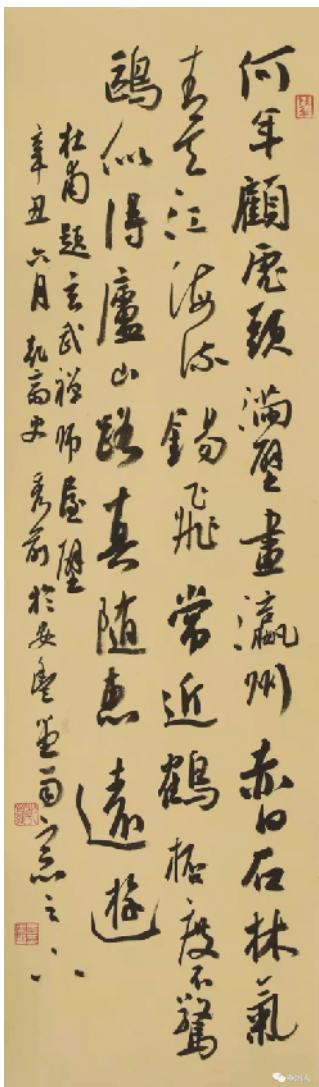 何年顧虎頭滿壁畫瀛州赤日石林氣
青天江海流錫飛常近鶴桮度不驚
鷗似得廬山路真随惠遠遊
杜甫題玄武禅師屋壁
辛丑六月 史秀前於安豐雨窗之